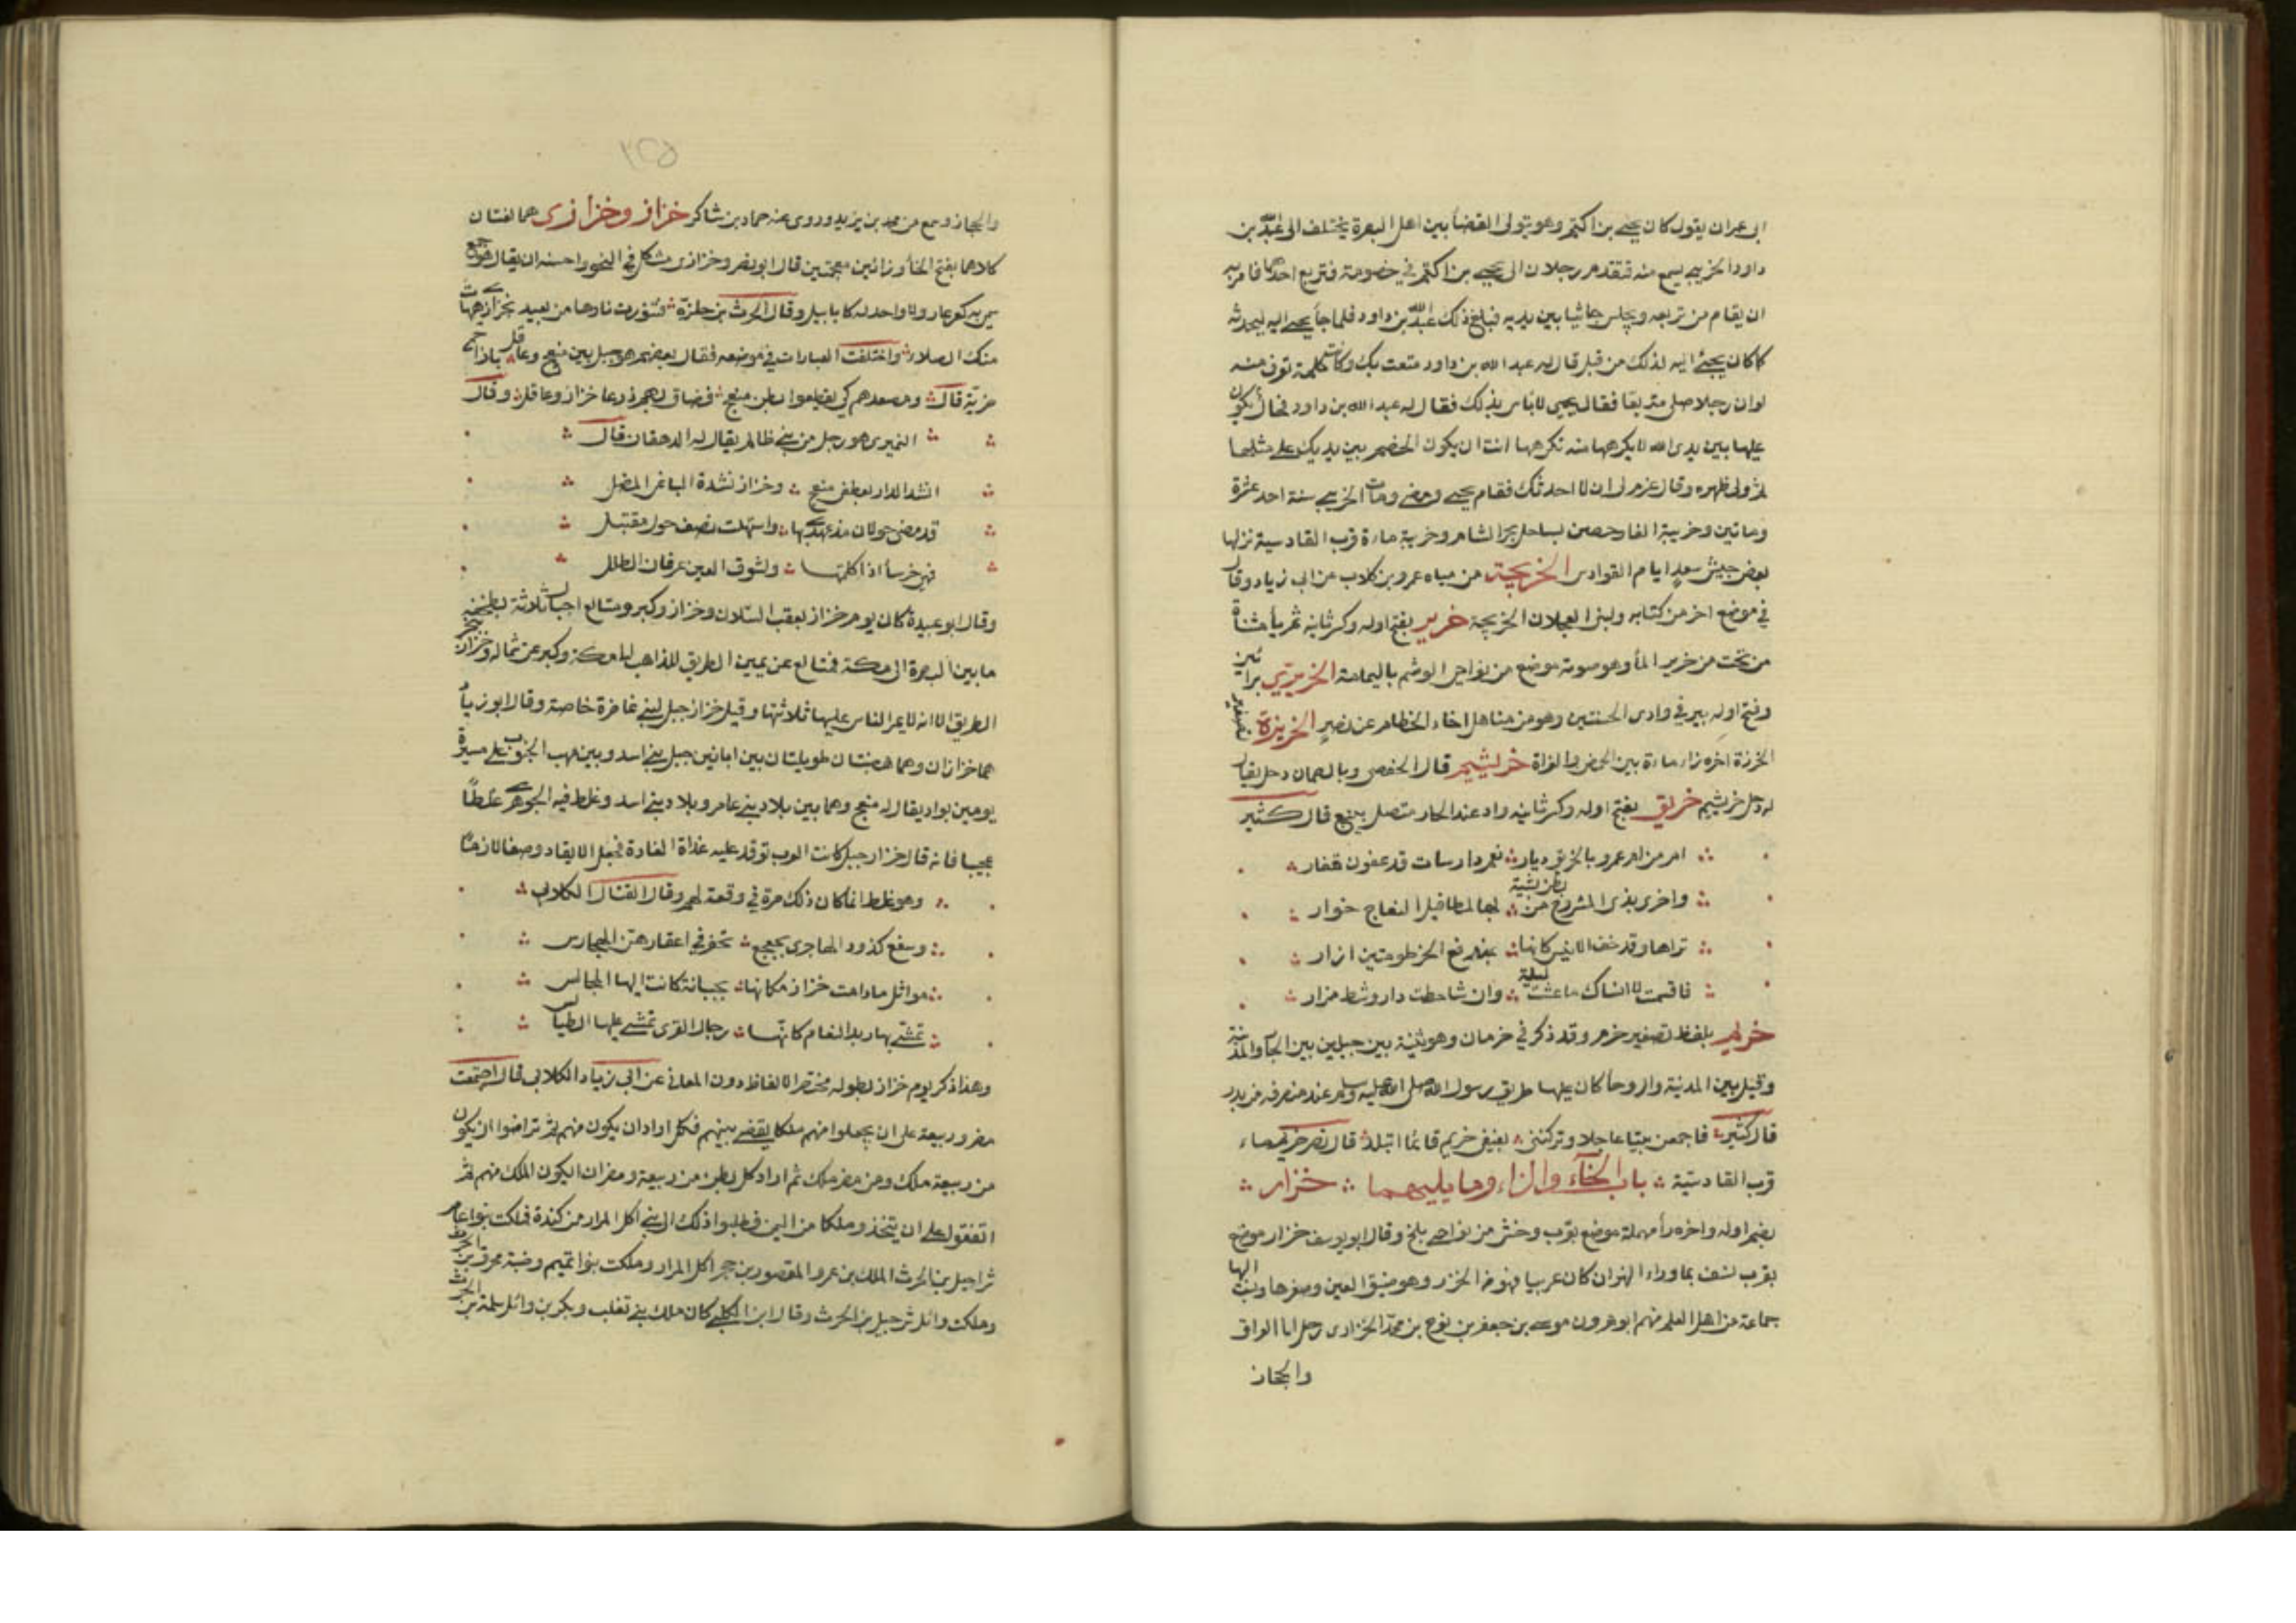 ابى عمران يقول كان يحيى بن اكثم وهو يتولى القضا بين اهل البصرة يختلف الى عبد الله بن
داود الخريبي يسمع منه فتقدم رجلان الى يحيى بن اكثم في خصومة فتربع احدهما فامر به
ان يقام من تربعه ويجلس جاثيا بين يديه فبلغ ذلك عبد الله بن داود فلما جأ يحيى اليه ليحدثه
كما كان يجئ اليه لذلك من قبل قال له عبد الله بن داود متعت بك وكانت كلمة تعرف منه
لو ان رجلا صلى متربعا فقال يحيى لا باس بذلك فقال له عبد الله بن داود فحال يكون
عليها بين يدى الله لا يكرهها منه تكرهها انت ان يكون الخصم بين يديك على مثلها
ثم ولى ظهره وقال عزم لى ان لا احدثك فقام يحيى ومضى ومات الخريبي سنة احد عشرة
وماتين وخريبة الغار حصن بساحل بحر الشام وخريبة ماءة قرب القادسية نزلها
بعض جيش سعد ايام القوادس الخريجة من مياه عمرو بن كلاب عن ابى زياد وقال
في موضع اخر من كتابه ولبنى العجلان الخريجة خرير بفتح اوله وكسر ثانيه ثم يأ مثناة
من تحت من خرير المأ وهو صوته موضع من نواحى الوشم باليمامة الخريرى برائين
وفتح اوله بير في وادى الحسنتين وهو من مناهل اجاء العظام عن نصر الخريزة تصغير
الخرزة اخره زاء ماءة بين الحمض والغزاة خريشيم قال الحفصى وبالدهمان دحل يقال
له دحل خريشيم خريق بفتح اوله وكسر ثانيه واد عند الجار متصل بينبع قال كثير
امن ام عمرو بالخريق ديار نعم دارسات قد عفون قفار
واخرى بذى المشروح من بطن بيشة بها لمطافيل النعاج خوار
تراها وقد خف الانيس كانها بمندفع الخرطومتين ازار
فاقسمت لا انساك ما عشت ليلة وان شاحطت دار وشط مزار
خريم بلفظ تصغير خرم وقد ذكر في خرمان وهو ثنية بين جبلين بين الجار والمدينة
وقيل بين المدينة والروحا كان عليها طريق رسول الله صلى الله عليه وسلم عند منصرفه من بدر
قال كثير فاجمعن بينا عاجلا وتركننى بفيفى خريم قائما اتبلد قال نصر خريم ماء
قرب القادسية باب الخاء والزاء وما يليهما خزار
بضم اوله واخره رأ مهملة موضع بقرب وخش من نواحى بلخ وقال ابو يوسف خزار موضع
بقرب نسف بما وراء النهر ان كان عربيا فهو من الخزر وهو ضيق العين وصغرها ونسب اليها
جماعة من اهل العلم منهم ابو هرون موسى بن جعفر بن نوح بن محمد الخزارى رحل الى العراق
والحجاز
٢٥٥
والحجاز وسمع من محمد بن يزيد وروى عنه حماد بن شاكر خزاز وخزازى هما لغتان
كلاهما بفتح الخأ وزائين معجمتين قال ابو نصر وخزازى مشكل في النحو واحسنه ان يقال هو جمع
سمى به كعراعر ولا واحد له كابابيل وقال الحرث بن حلزة فتنورت نارها من بعيد بخزازى هيهات
منك الصلاء واختلفت العبارات في موضعه فقال بعضهم هو جبل بين منعج وعاقل بازا حمى
ضرية قال ومصعدهم كى يقطعوا بطن منعج فضاق بهم ذرعا خزاز وعاقل وقال
النميرى هو رجل من بنى ظالم يقال له الدهقان قال
انشد الدار بعطفى منعج وخزاز نشدة الباغى المضل
قد مضى حولان مذ عهدى بها واستهلت نصف حول مقتبل
فهى خرسأ اذا كلمتها ولشوق العين عرفان الطلل
وقال ابو عبيدة كان يوم خزاز بعقب السلان وخزاز وكير ومتالع اجبال ثلاثة بطخفة
ما بين البصرة الى مكة فمتالع عن يمين الطريق للذاهب الى مكة وكير عن شماله وخزاز بنحر
الطريق الا انه لا يمر الناس عليها ثلاثتها وقيل خزاز جبل لبنى غاضرة خاصة وقال ابو زياد
هما خزازان وهما هضبتان طويلتان بين ابانين جبل بنى اسد وبين مهب الجنوب على مسيرة
يومين بواد يقال له منعج وهما بين بلاد بنى عامر وبلاد بنى اسد وغلط فيه الجوهرى غلطا
عجيبا فانه قال خزاز جبل كانت العرب توقد عليه غداة الغارة فجعل الايقاد وصفا لازما
وهو غلط انما كان ذلك مرة في وقعة لهم وقال القتال الكلابى
وسفع كذود الهاجرى بجعجع تحفر في اعقارهن الهجارس
مواثل ما دامت خزاز مكانها بجبانة كانت اليها المجالس
تمشى بها ربد النعام كانها رجال القرى تمشى عليها الطيالس
وهذا ذكر يوم خزاز بطوله مختصر الالفاظ دون المعانى عن ابى زياد الكلابى قال اجتمعت
مضر وربيعة على ان يجعلوا منهم ملكا يقضى بينهم فكل اراد ان يكون منهم ثم تراضوا ان يكون
من ربيعة ملك ومن مضر ملك ثم اراد كل بطن من ربيعة ومضر ان يكون الملك منهم ثم
اتفقوا على ان يتخذوا ملكا من اليمن فطلبوا ذلك الى بنى اكل المرار من كندة فملكت بنو عامر
شراحيل بن الحرث الملك بن عمرو المقصور بن حجر اكل المرار وملكت بنو تميم وضبة محرق بن الحرث
وملكت وائل شرحبيل بن الحرث وقال ابن الكلبى كان ملك بنى تغلب وبكر بن وائل سلمة بن الحرث